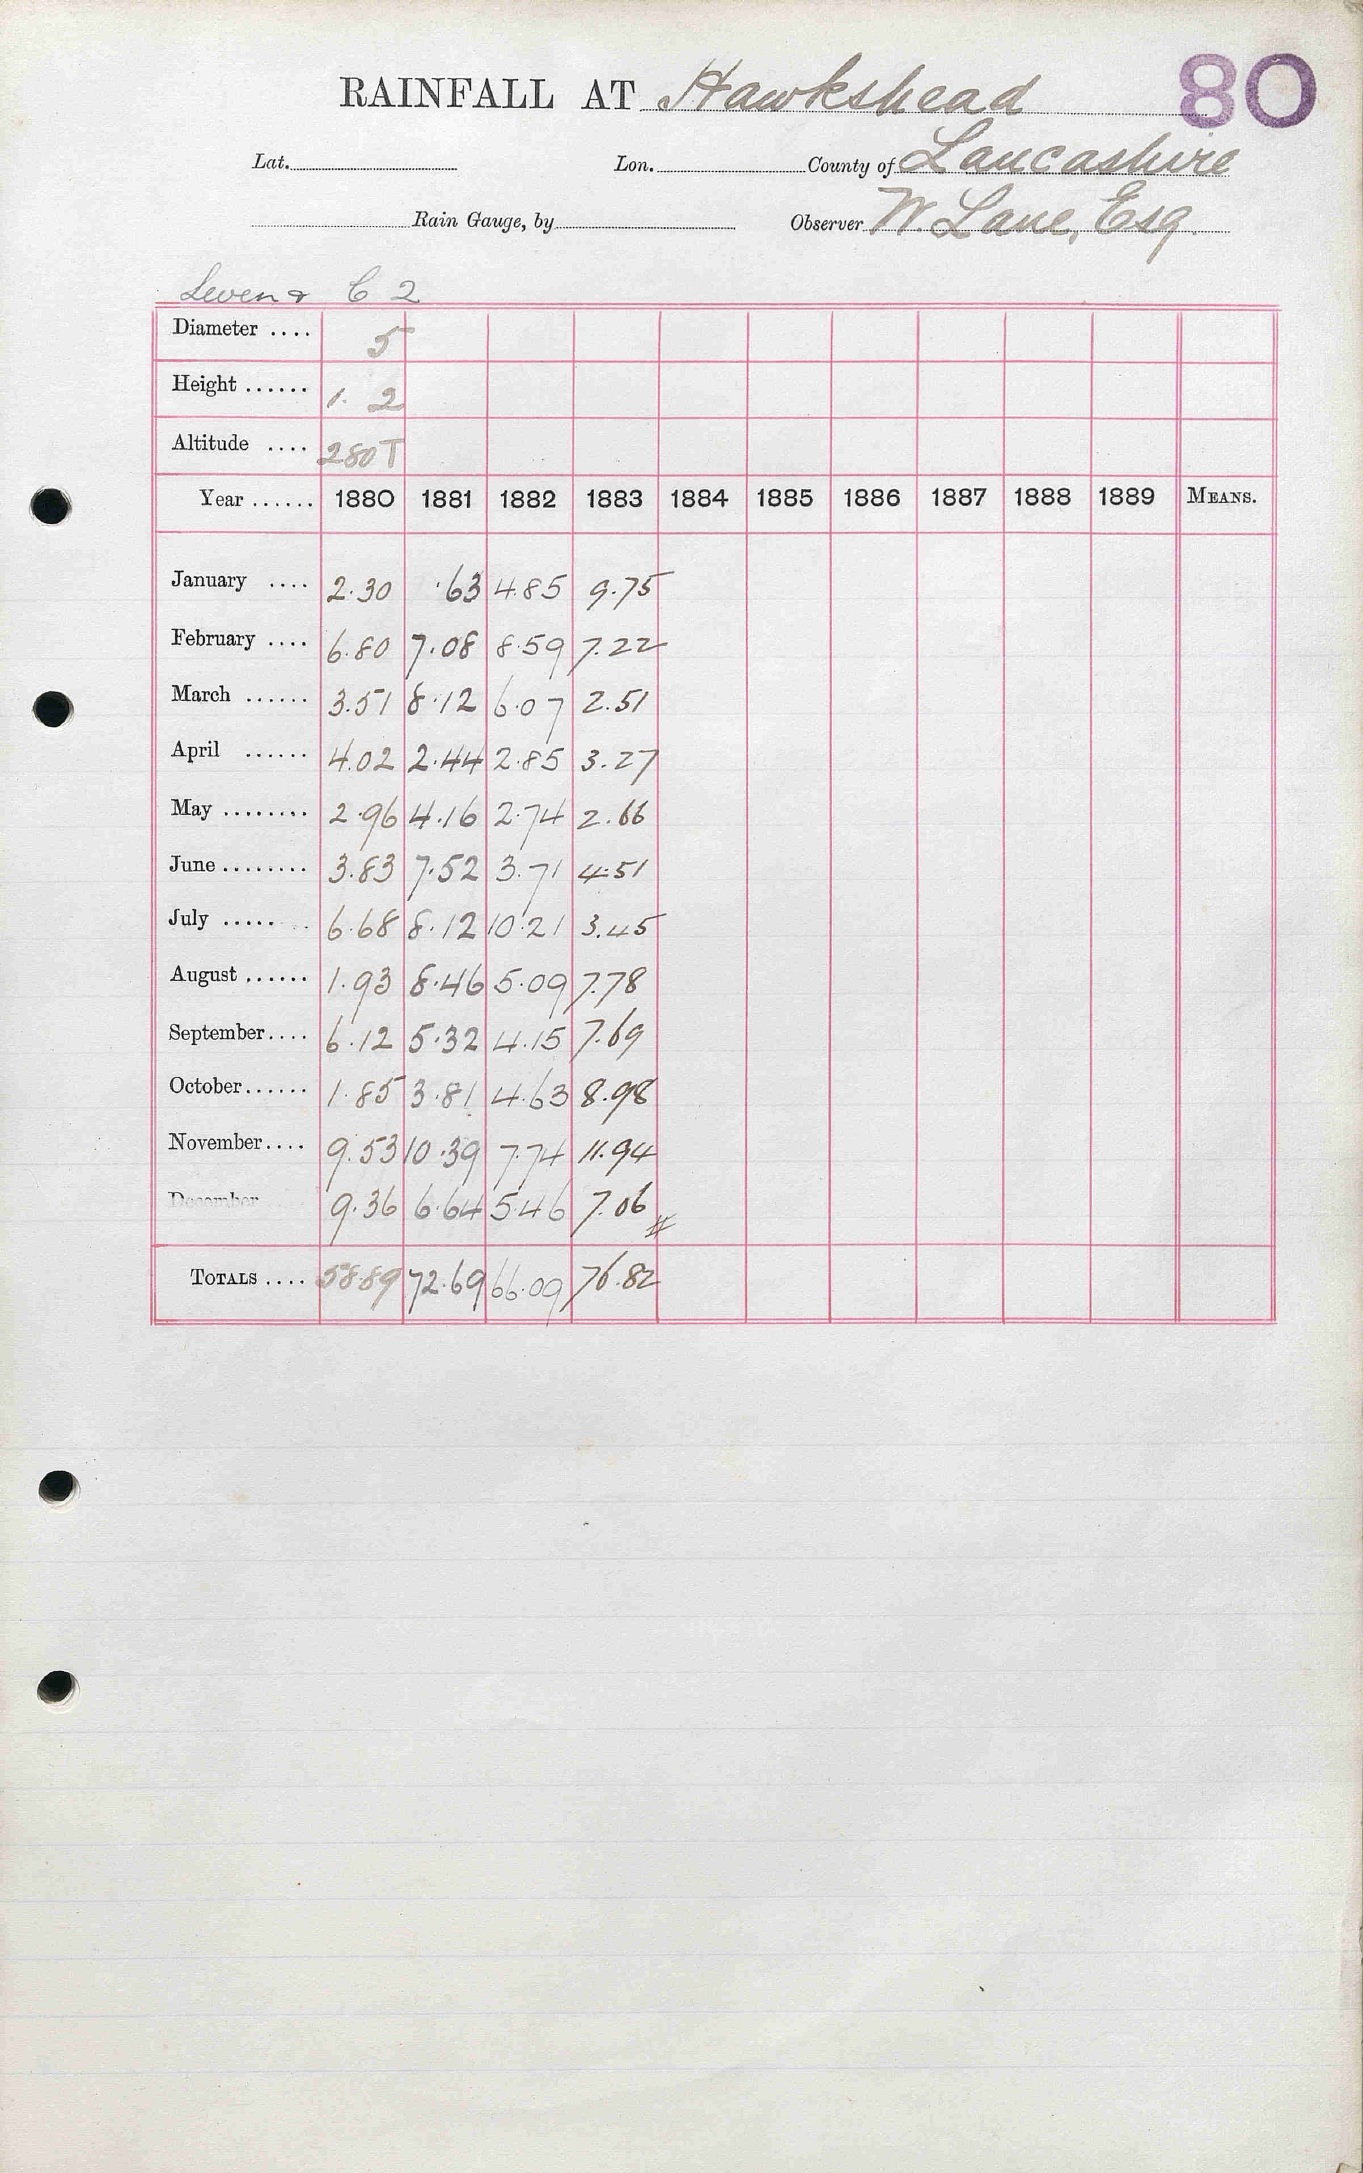 RAINFALL AT Hawkshead 80
Lat. Lon. County of Lancashire
Rain Gauge, by Observer W. Lane, Esq.
Leven & C 2
Diameter .... 5
Height ...... 1. 2
Altitude .... 280T
Year ...... 1880 1881 1882 1883 1884 1885 1886 1887 1888 1889 MEANS.
January .... 2.30 .63 4.85 9.75
February .... 6.80 7.08 8.59 7.22
March ...... 3.51 8.12 6.07 2.51
April ...... 4.02 2.44 2.85 3.27
May ........ 2.96 4.16 2.74 2.66
June ........ 3.83 7.52 3.71 4.51
July ........ 6.68 8.12 10.21 3.45
August ...... 1.93 8.46 5.09 7.78
September.... 6.12 5.32 4.15 7.69
October...... 1.85 3.81 4.63 8.98
November.... 9.53 10.39 7.74 11.94
December 9.36 6.64 5.46 7.06 #
TOTALS .... 58.89 72.69 66.09 76.82